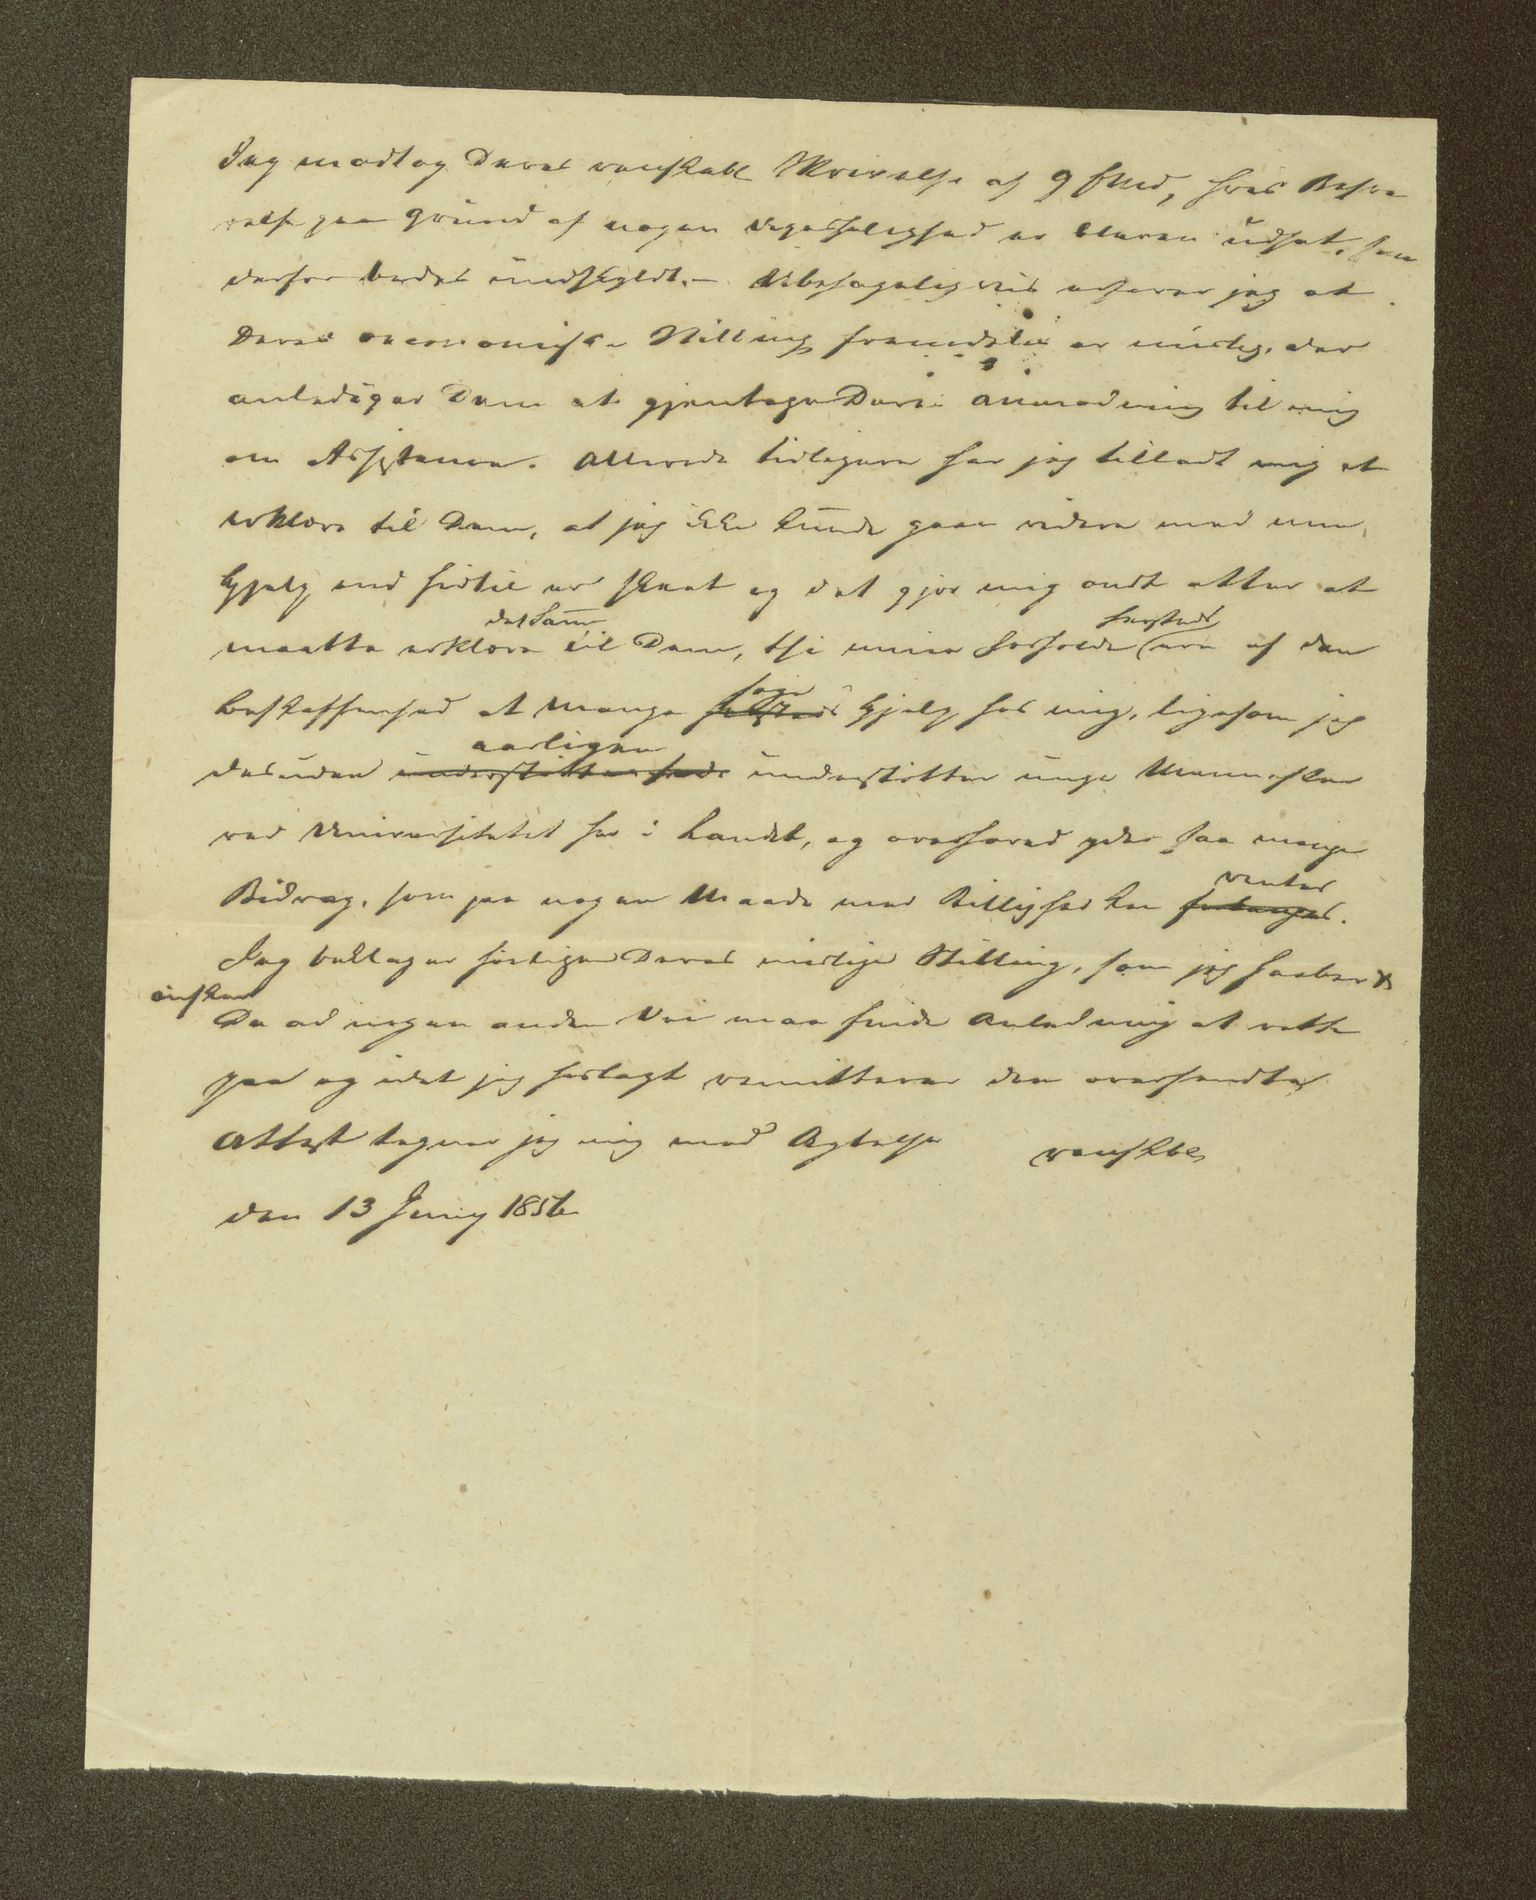 Jeg modtog Deres venskabl Skrivelse af 9 f Md, hvis Besva
relse paa Grund af nogen Upasselighed er bleven udsat, som
derfor bedes undskyldt. – Ubehageligviis erfarer jeg at
Deres oeconomiske Stilling fremdeles er mislig, der
anlediger Dem at gjentage Deres Anmodning til mig
om Assistance. Allerede tidligere har jeg tilladt mig at
erklære til Dem, at jeg ikke kunde gaae videre med min
Hjelp end hidtil er skeet og det gjør mig ondt atter at
maatte erklære det samme til Dem, thi mine Forholde hersteds ere af den
Beskaffenhed at mange søge Hjelp hos mig, ligesom jeg
desuden understøtter aarligen understøtter unge Mennesker
ved Universitetet her i Landet, og overhoved yder saa mange
Bidrag, som paa nogen Maade med Billighed kan forlanges ventes.
Jeg beklager forøvrigt Deres mislige Stilling, som jeg haaber &
ønsker
De ad nogen anden Vei maa finde Anledning at rette
paa og idet jeg herlagt remitterer den oversendte
Attest tegner jeg mig med Agtelse venskbl
den 13 Juny 1856